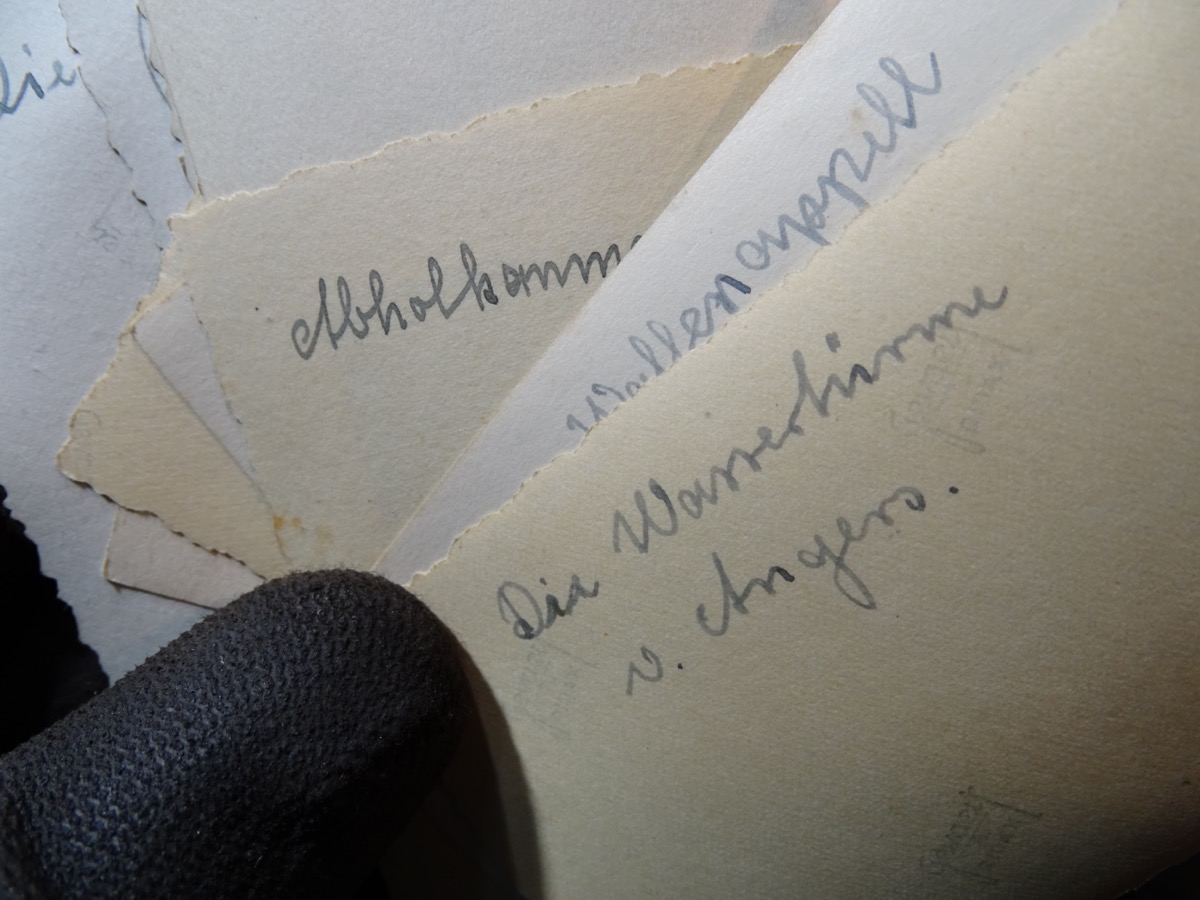 die
Abholkomm
Wellenappell
Die Wassertürme
v. Angers.